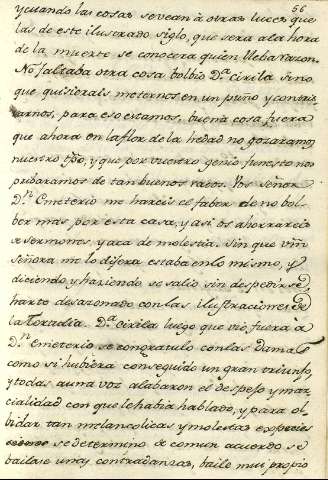 56
y cuando las cosas se vean à otras luces que
las de este ilustrado siglo, que sera ala hora
de la muerte se conocera quien lleba razon.
No faltaba otra cosa bolbio Dª. Cirila sino
que quisierais meternos en un puño y
arnos, para eso estamos, buena cosa fuera
que ahora en la flor de la hedad no gozaramos
nuestro tpo, y que por vuestro genio funesto nos
pribaramos de tan buenos ratos. Vos señor
Dn. Emeterio me hareis el fabor de no bol-
ber mas por esta casa, y asi os ahorrareis
de sermones, y aca de molestia. Sin que vm
Señora me lo dijera estaba en lo mismo, y
diciendo y haziendo se salio sin despedirse,
harto desazonado con las ilustraciones de
la Tortudia. Dª. Cirila luego que vio, fuera a
Dn. Emeterio se congratulo con las Damas
como si hubiera conseguido un gran triunfo,
y todas a una voz alabaron el despejo y mar-
cialidad con que le habia hablado, y para ol-
bidar tan melancolicas y molestas especies
se determino de comun acuerdo se
bailase unas contradanzas, baile muy propio